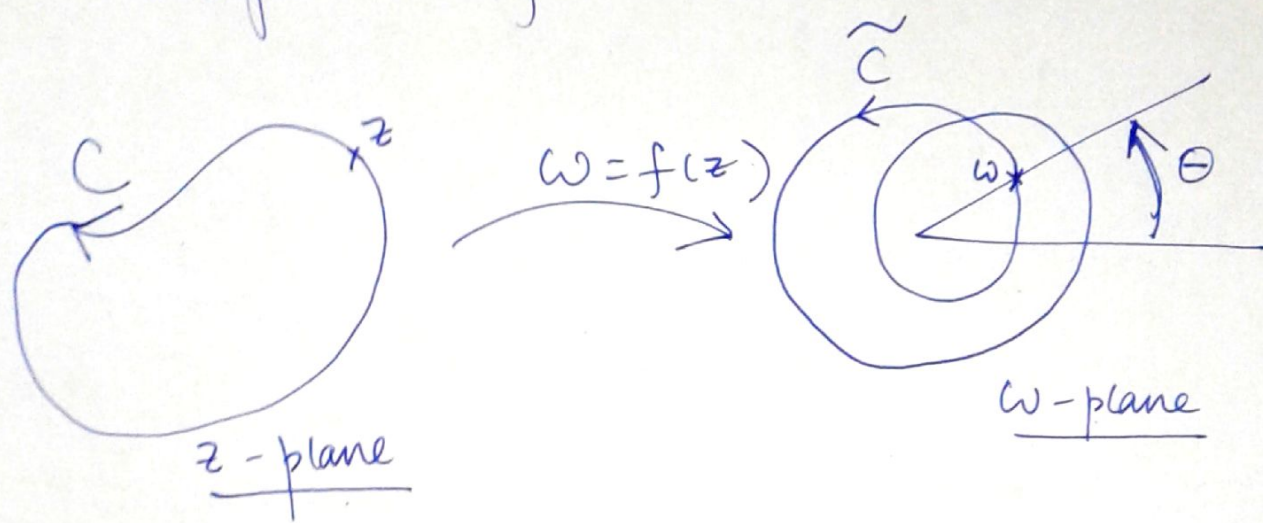 C
z
z - plane
ω = f(z)
C̃
ω
θ
ω - plane